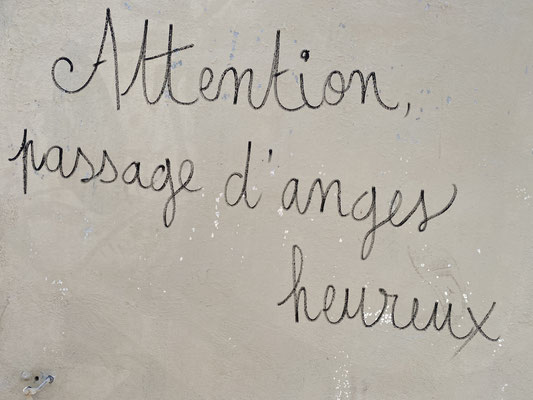 Attention,
passage d'anges
heureux